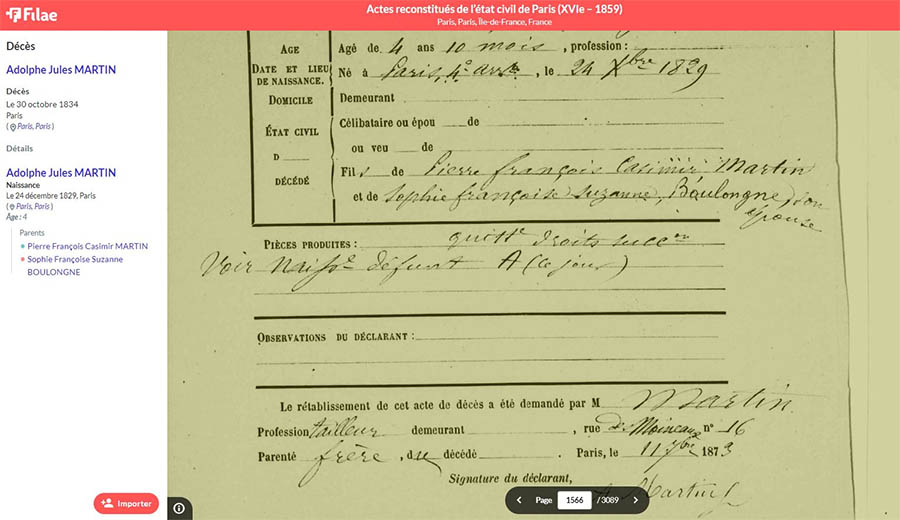 Filae
Actes reconstitués de l'état civil de Paris (XVIe – 1859)
Paris, Paris, Île-de-France, France
Décès
Adolphe Jules MARTIN
Décès
Le 30 octobre 1834
Paris
( Paris, Paris )
Détails
Adolphe Jules MARTIN
Naissance
Le 24 décembre 1829, Paris
( Paris, Paris )
Âge : 4
Parents
Pierre François Casimir MARTIN
Sophie Françoise Suzanne
BOULONGNE
Importer
AGE
Agé de 4 ans 10 mois, profession :
DATE ET LIEU
DE NAISSANCE.
Né à Paris, 4e arrt, le 24 Xbre 1829
DOMICILE
Demeurant
ÉTAT CIVIL
Célibataire ou épou de
D
ou veu de
DÉCÉDÉ
Fils de Pierre françois Casimir, Martin
et de Sophie françoise Suzanne, Boulongne, son
épouse
PIÈCES PRODUITES : quitte droits succon
Voir Naisse défunt A (ce jour)
OBSERVATIONS DU DÉCLARANT :
Le rétablissement de cet acte de décès a été demandé par M Martin
Profession tailleur demeurant , rue des Moineaux n° 16
Parenté frère, du décédé Paris, le 11 7bre 1873
Signature du déclarant,
Martin
Page 1566 / 3089